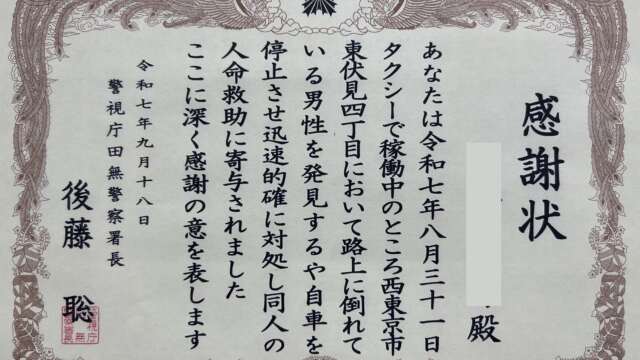 感謝状
殿
あなたは令和七年八月三十一日
タクシーで稼働中のところ西東京市
東伏見四丁目において路上に倒れて
いる男性を発見するや自車を
停止させ迅速的確に対処し同人の
人命救助に寄与されました
ここに深く感謝の意を表します
令和七年九月十八日
警視庁田無警察署長
後藤聡